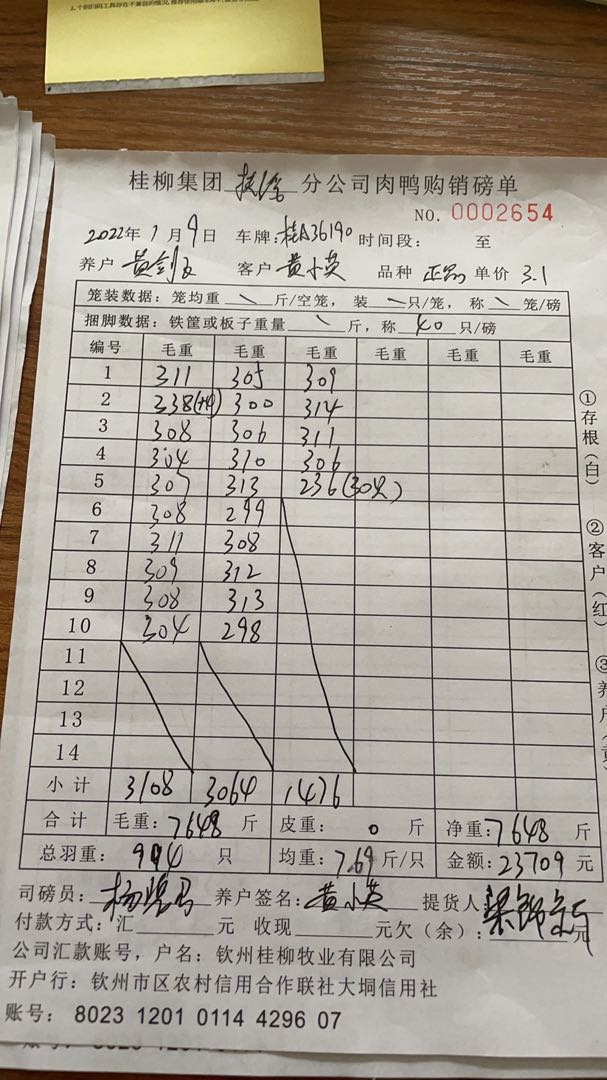 桂柳集团扶绥分公司肉鸭购销磅单
NO. 0002654
2022年1月9日 车牌:桂A36190 时间段: 至
养户 黄剑 客户 黄小英 品种 正品 单价 3.1
笼装数据: 笼均重 \ 斤/空笼, 装 \ 只/笼, 称 \ 笼/磅
捆脚数据: 铁筐或板子重量 \ 斤, 称 40 只/磅
编号 毛重 毛重 毛重 毛重 毛重 毛重
1 311 305 309
2 338(44) 300 314
3 308 306 311
4 304 310 306
5 307 313 236(30只)
6 308 299
7 311 308
8 309 312
9 308 313
10 304 298
11
12
13
14
小计 3108 3064 1476
合计 毛重: 7648 斤 皮重: 0 斤 净重: 7648 斤
总羽重: 994 只 均重: 7.69 斤/只 金额: 23709 元
司磅员: 养户签名: 黄小英 提货人
付款方式: 汇 元 收现 元 欠(余): 元
公司汇款账号, 户名: 钦州桂柳牧业有限公司
开户行: 钦州市区农村信用合作联社大垌信用社
账号: 8023 1201 0114 4296 07
①存根(白)
②客户(红)
③养户(黄)